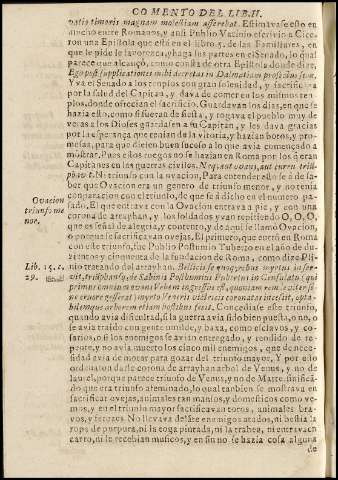 COMENTO DEL LIB. II.
natio timoris magnam molestiam afferebat. Estimavase esto en
mucho entre Romanos, y ansi Publio Vatinio escrivio a Cice-
ron una Epistola que està en el libro 5. de las Familiares, en
que le pide le favorezca, i haga sus partes en el Senado, lo qual
parece que alcançò, como consta de otra Epistola donde dize,
Ego post supplicationes mihi decretas in Dalmatiam profectus sum.
Y va el Senado a los templos con gran solenidad, y sacrificava
por la salud del Capitan, y dava de comer en los mismos tem-
plos, donde ofrecian el sacrificio. Guardavan los dias, en que se
hazia esto, como si fueran de fiesta, y rogava el pueblo muy de
veras a los Dioses guardassen a su Capitan, y les dava gracias
por la esperança que tenian de la vitoria, y hazian votos, y pro-
mesas, para que diesen buen suceso a lo que avia començado a
mostrar. Pues ellos ruegos no se hazian en Roma por los Gran
Capitanes en las guerras civiles. Neque aut ovans, aut curru
Ni triunfo con la ovacion, Para entender esto se à de sa-
ber que Ovacion era un genero de triunfo menor, y no tenia
comparacion con el triunfo, de que se à dicho en el numero pa-
sado. El que entrava con la Ovacion entrava a pie, y con una
corona de arrayhan, y los soldados yvan repitiendo O, O, O,
que es señal de alegria, y contento, y de aqui se llamò Ovacion,
o porque se sacrificavan ovejas. El primero, que entrò en Roma
con este triunfo, fue Publio Postumio Tuberto en el año de du-
zientos y cincuenta de la fundacion de Roma, como dize Pli-
nio tratando del arrayhan. Bellicis se quoque rebus myrtus inser-
vit, triumphansque de Sabinis Posthumius Tubertus in Consulatu (qui
primus omnium ovans Vrbem ingressus est, quoniam rem leviter si-
ne cruore gesserat) myrto Veneris victricis coronatus incessit, opta-
bilemque arborem etiam hostibus fecit. Concediase este triunfo,
quando avia dificultad, si la guerra avia sido bien puesta, o no, o
se avia traido con gente umilde, y baxa, como esclavos, y co-
sarios, o si los enemigos se avian entregado, y rendido de re-
pente, y no avia muerto los cinco mil enemigos, que de nece-
sidad avia de matar para gozar del triunfo mayor, Y por esto
ordenaron darle corona de arrayhan arbol de Venus, y no de
laurel, porque parece triunfo de Venus, y no de Marte, sinifica-
do que era triunfo afeminado, lo qual tambien se mostrava en
sacrificar ovejas, animales tan mansos, y domesticos como ve-
mos, y en el triunfo mayor sacrificavan toros, animales bra-
vos, y feroces. No llevava delãte enemigos atados, ni vestia
ropa de purpura, ni la toga pintada, ni la trahea, ni entrava en
carro, ni le recebian musicos, y en fin no se hazia cosa alguna
de
Ovacion
triunfo me
nor.
Lib. 15. c.
29.